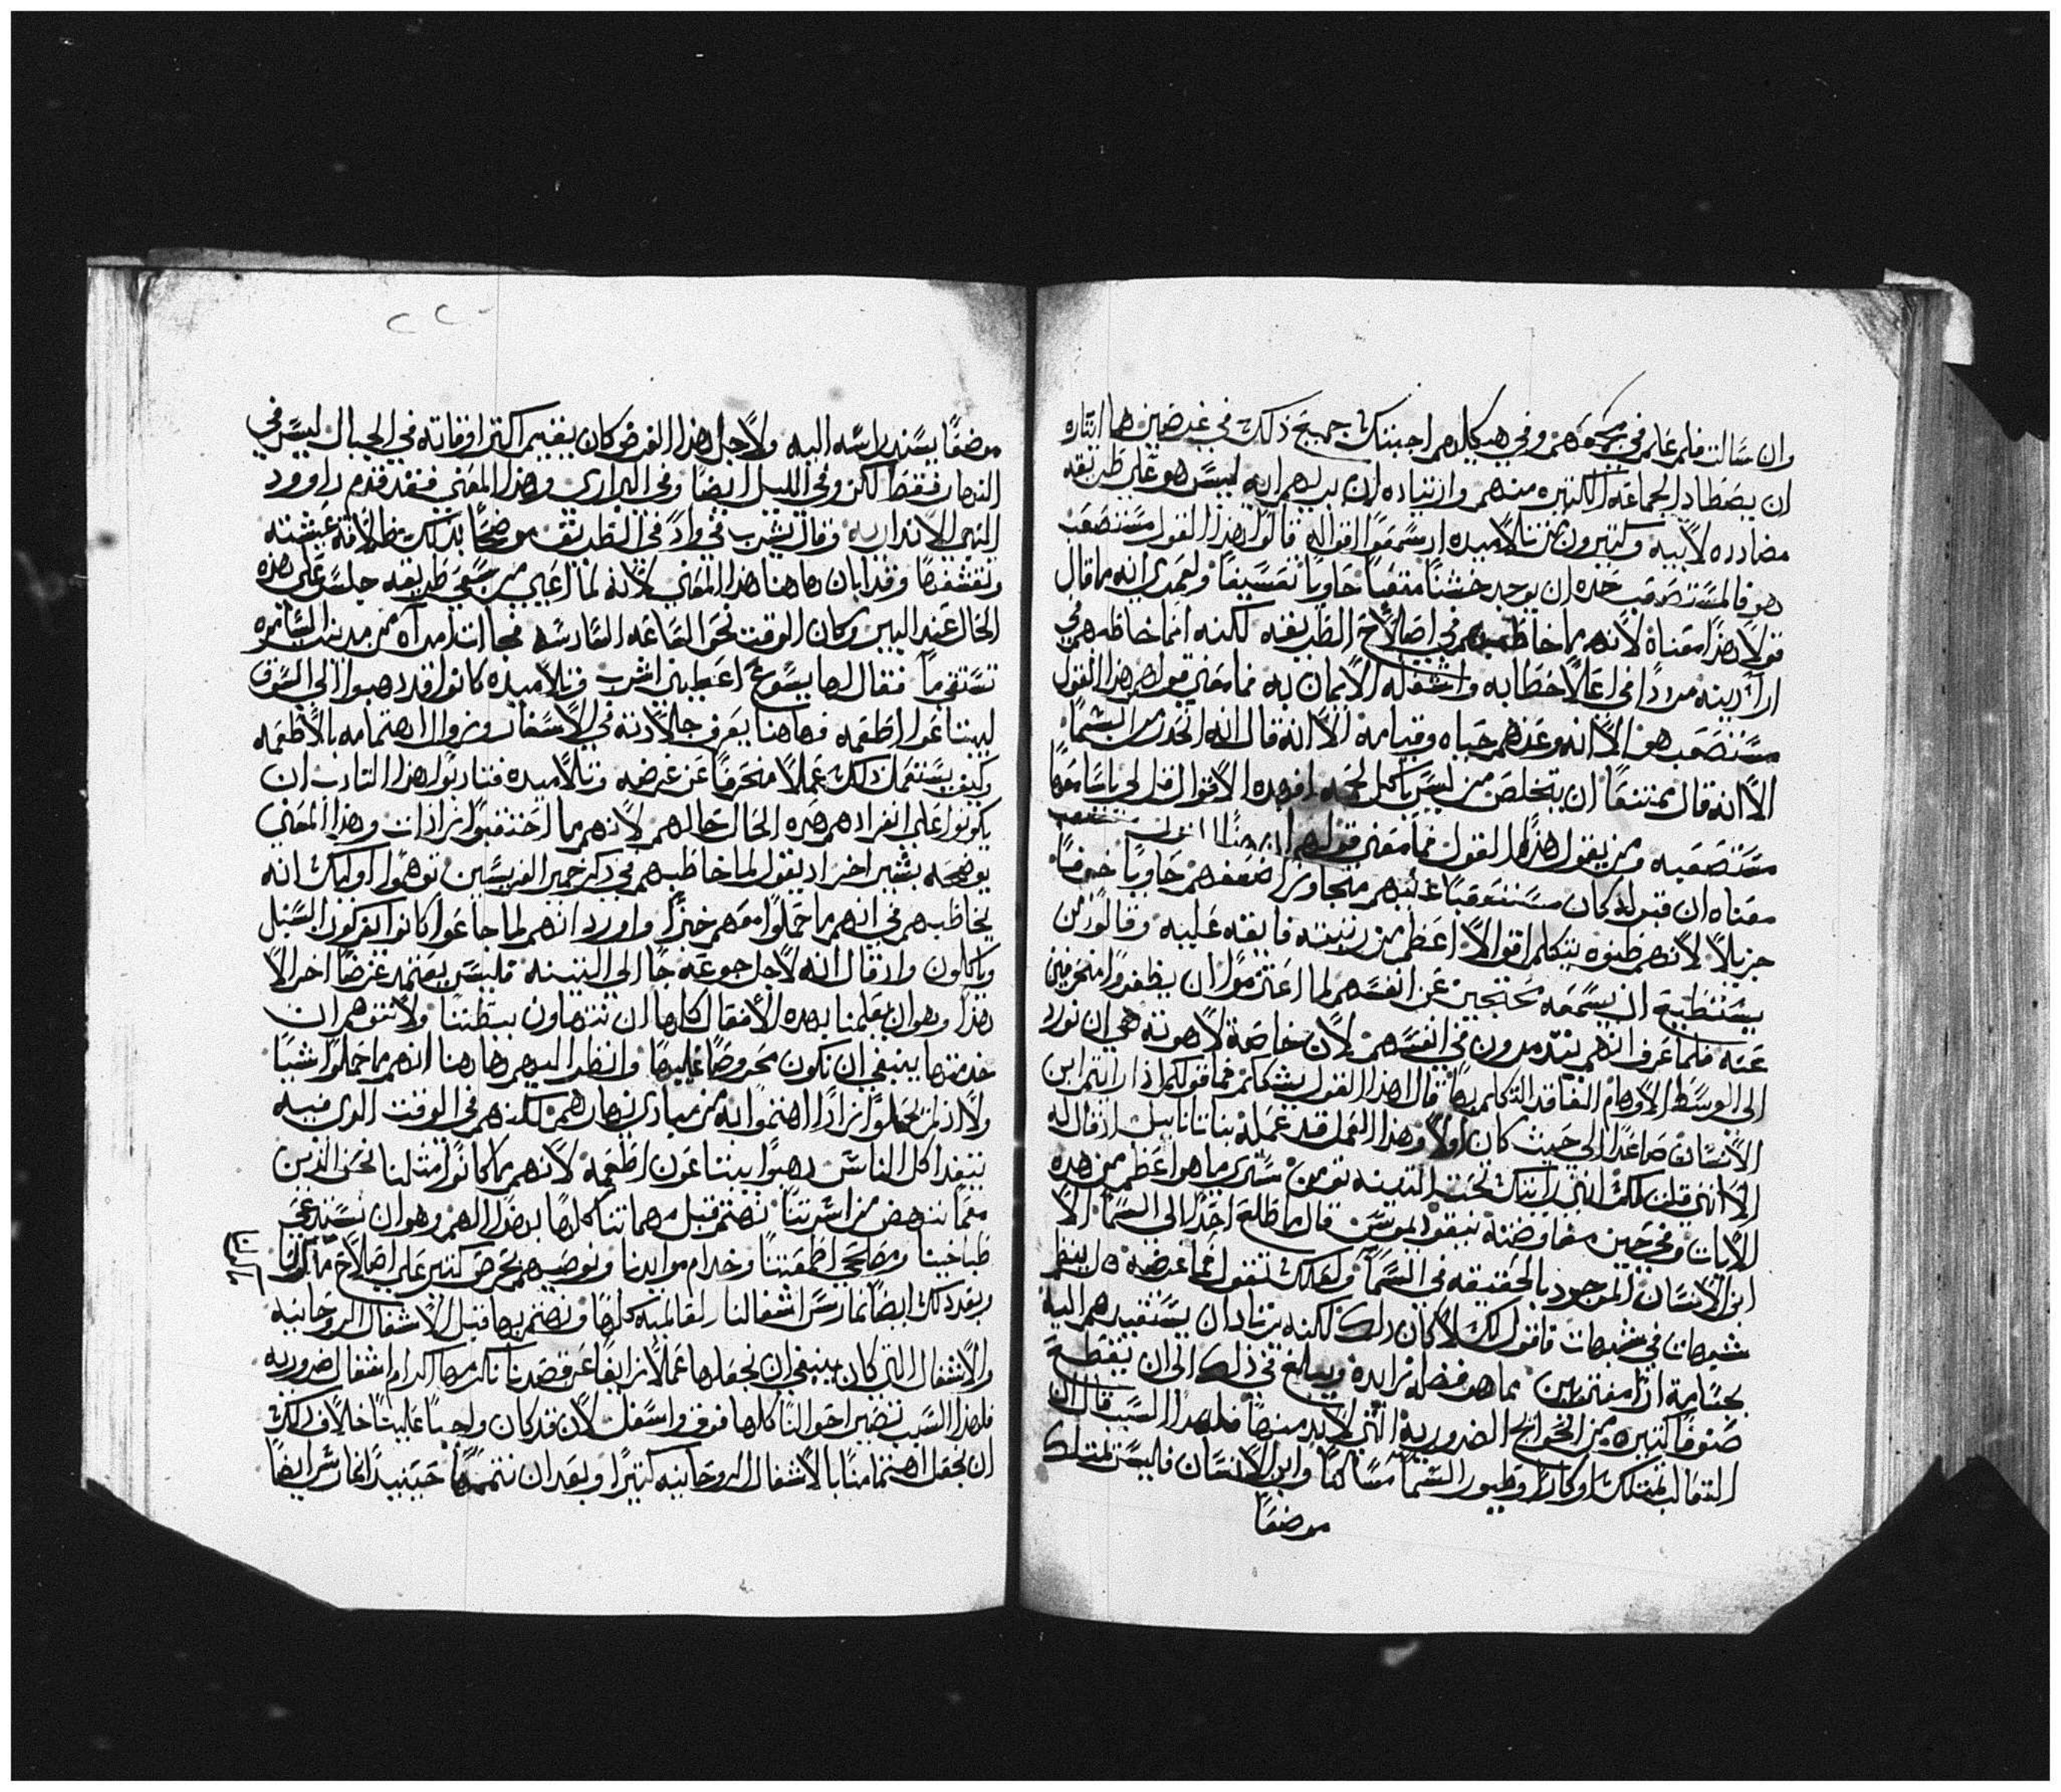 وان سالت فلم علم في مجمعهم وفي هيكلهم اجبتك جميع ذلك في غرضين هما ايثاره
ان يصطاد الجماعه الكثيره منهم وازتياده ان يريهم انه ليس هو علي طريقه
مضادده لابيه وكثيرون من تلاميده اد سمعوا اقواله قالوا هذا القول مستصعب
هو فالمستصعب حده ان يوجد خشنا متعبا حاويا تعسيفا ولعمري انه ما قال
قولا هذا معناه لانه ما خاطبهم في اصلاح الطريقه لكنه انما خاطبهم في
اراء دينه مرددا في اعلا خطابه واشغاله الايمان به فما معني قولهم هذا القول
مستصعب هو الا انه وعدهم حياه وقيامه الا انه قال انه انحدر من السما
الا انه قال ممتنعا ان يتخلص من ليس ياكل لحمه افهده الاقوال قل لي ياسامعها
مستصعبه ومن يقول هذا القول فما معني قولهم ان هذا القول مستصعب
معناه ان قبوله كان مستصعبا عندهم متجاوزا ضعفهم حاويا خوفا
جزيلا لانهم ظنوه يتكلم اقوالا اعظم من رتبته فايقه عليه وقالوا من
يستطيع ان يسمعه محتجين عن انفسهم لما اعتزموا ان يظفروا منحرفين
عنه فلما عرف انهم يتدمرون في انفسهم لان خاصة لاهوته هي ان نورد
الي الوسط الاوهام الفاقد التكلم بها قال اهذا القول يشككم فما قولكم اذا رايتم ابن
الانسان صاعدا الي حيث كان اولا وهذا العمل قد عمله بناتانايل اذ قال له
لانني قلت لك انني رايتك تحت التينه تومن ستري ما هو اعظم من هده
الايات وفي حين مفاوضته نيقوديموس قال ما طلع احدا الي السما الا
ابن الانسان الموجود بالحقيقه في السما ولعلك تقول فما غرضه هل ينظم
شبهات في شبهات فاقول لك لا كان دلك لكنه يرتاد ان يستقيدهم اليه
بجسامة اراء مقتربين بما هو فضله زايدة ويبلغ في ذلك الي ان يقطع
صنوفا كثيره من الحوايج الضروريه التي لا بد منها فلهدا السبب قال ان
الثعالب تمتلك اوكارا وطيور السما مساكنا وابن الانسان فليس يمتلك
موضعا
٢٢٠
موضعا يسند راسه اليه ولاجل هذا الغرض كان يقيم اكثر اوقاته في الجبال ليس في
النهار فقط لكن وفي الليل ايضا وفي البراري وهذا المعني فقد قدم داوود
النبي الانذار به وقال يشرب في وادً في الطريق موضحا بدلك طلاقة عيشته
وتقشفها وقد ابان هاهنا هذا المعني لانه لما اعيي من سعي طريقه جلس علي هذه
الحال عند البير وكان الوقت نحو الساعه السادسه فجاات امراه من مدينة السامره
تستقي ما فقال لها يسوع اعطيني اشرب وتلاميده كانوا قد دهبوا الي السوق
ليبتاعوا اطعمه فهاهنا يعرف جلادته في الاسفار وزوال اهتمامه بالاطعمه
وكيف يستعمل ذلك عملا منحرفا عن غرضه وتلاميده فتادبوا هذا التادب ان
يكونوا علي انفرادهم هده الحال حالهم لانهم ما احتقبوا زادات وهذا المعني
يوضحه بشير اخر اد يقول لما خاطبهم في دكر خمير الفريسين توهموا اوليك انه
يخاطبهم في انهم ما حملوا معهم خبزا واورد انهم لما جاعوا كانوا يفركون السنبل
وياكلون واد قال انه لاجل جوعه جا الي التينه فليس يعتمد غرضا اخر الا
هذا وهو ان يعلمنا بهده الافعال كلها ان نتهاون ببطننا ولا نتوهم ان
خدمتها ينبغي ان نكون محروصا عليها وانظر اليهم هاهنا انهم ما حملوا شيا
ولا اذ لم يحملوا زادا اهتموا به من مبادي نهارهم لكنهم في الوقت الدي فيه
يتغدا كل الناس دهبوا يبتاعون اطعمة لانهم ما كانوا مثلنا نحن الذين
معما ننهض من اسرتنا نهتم قبل مهماتنا كلها بهذا الهم وهو ان نستدعي
طباخينا ومصلحي اطعمتنا وخدام موايدنا ونوصيهم بحرص كثير علي اصلاح ماكولنا
وبعد دلك ايضا نمارس اشغالنا العالميه كلها ونهتم بها قبل الاشغال الروحانيه
والاشغال التي كان ينبغي ان نجعلها عملا زايغا عن قصدنا نكرمها اكرام اشغال ضروريه
فلهذا السبب تصير احوالنا كلها فوق واسفل لان قد كان واجبا علينا خلاف دلك
ان نجعل اهتمامنا بالاشغال الروحانيه كثيرا وبعد ان نتممها حينيدا نمارس ايضا